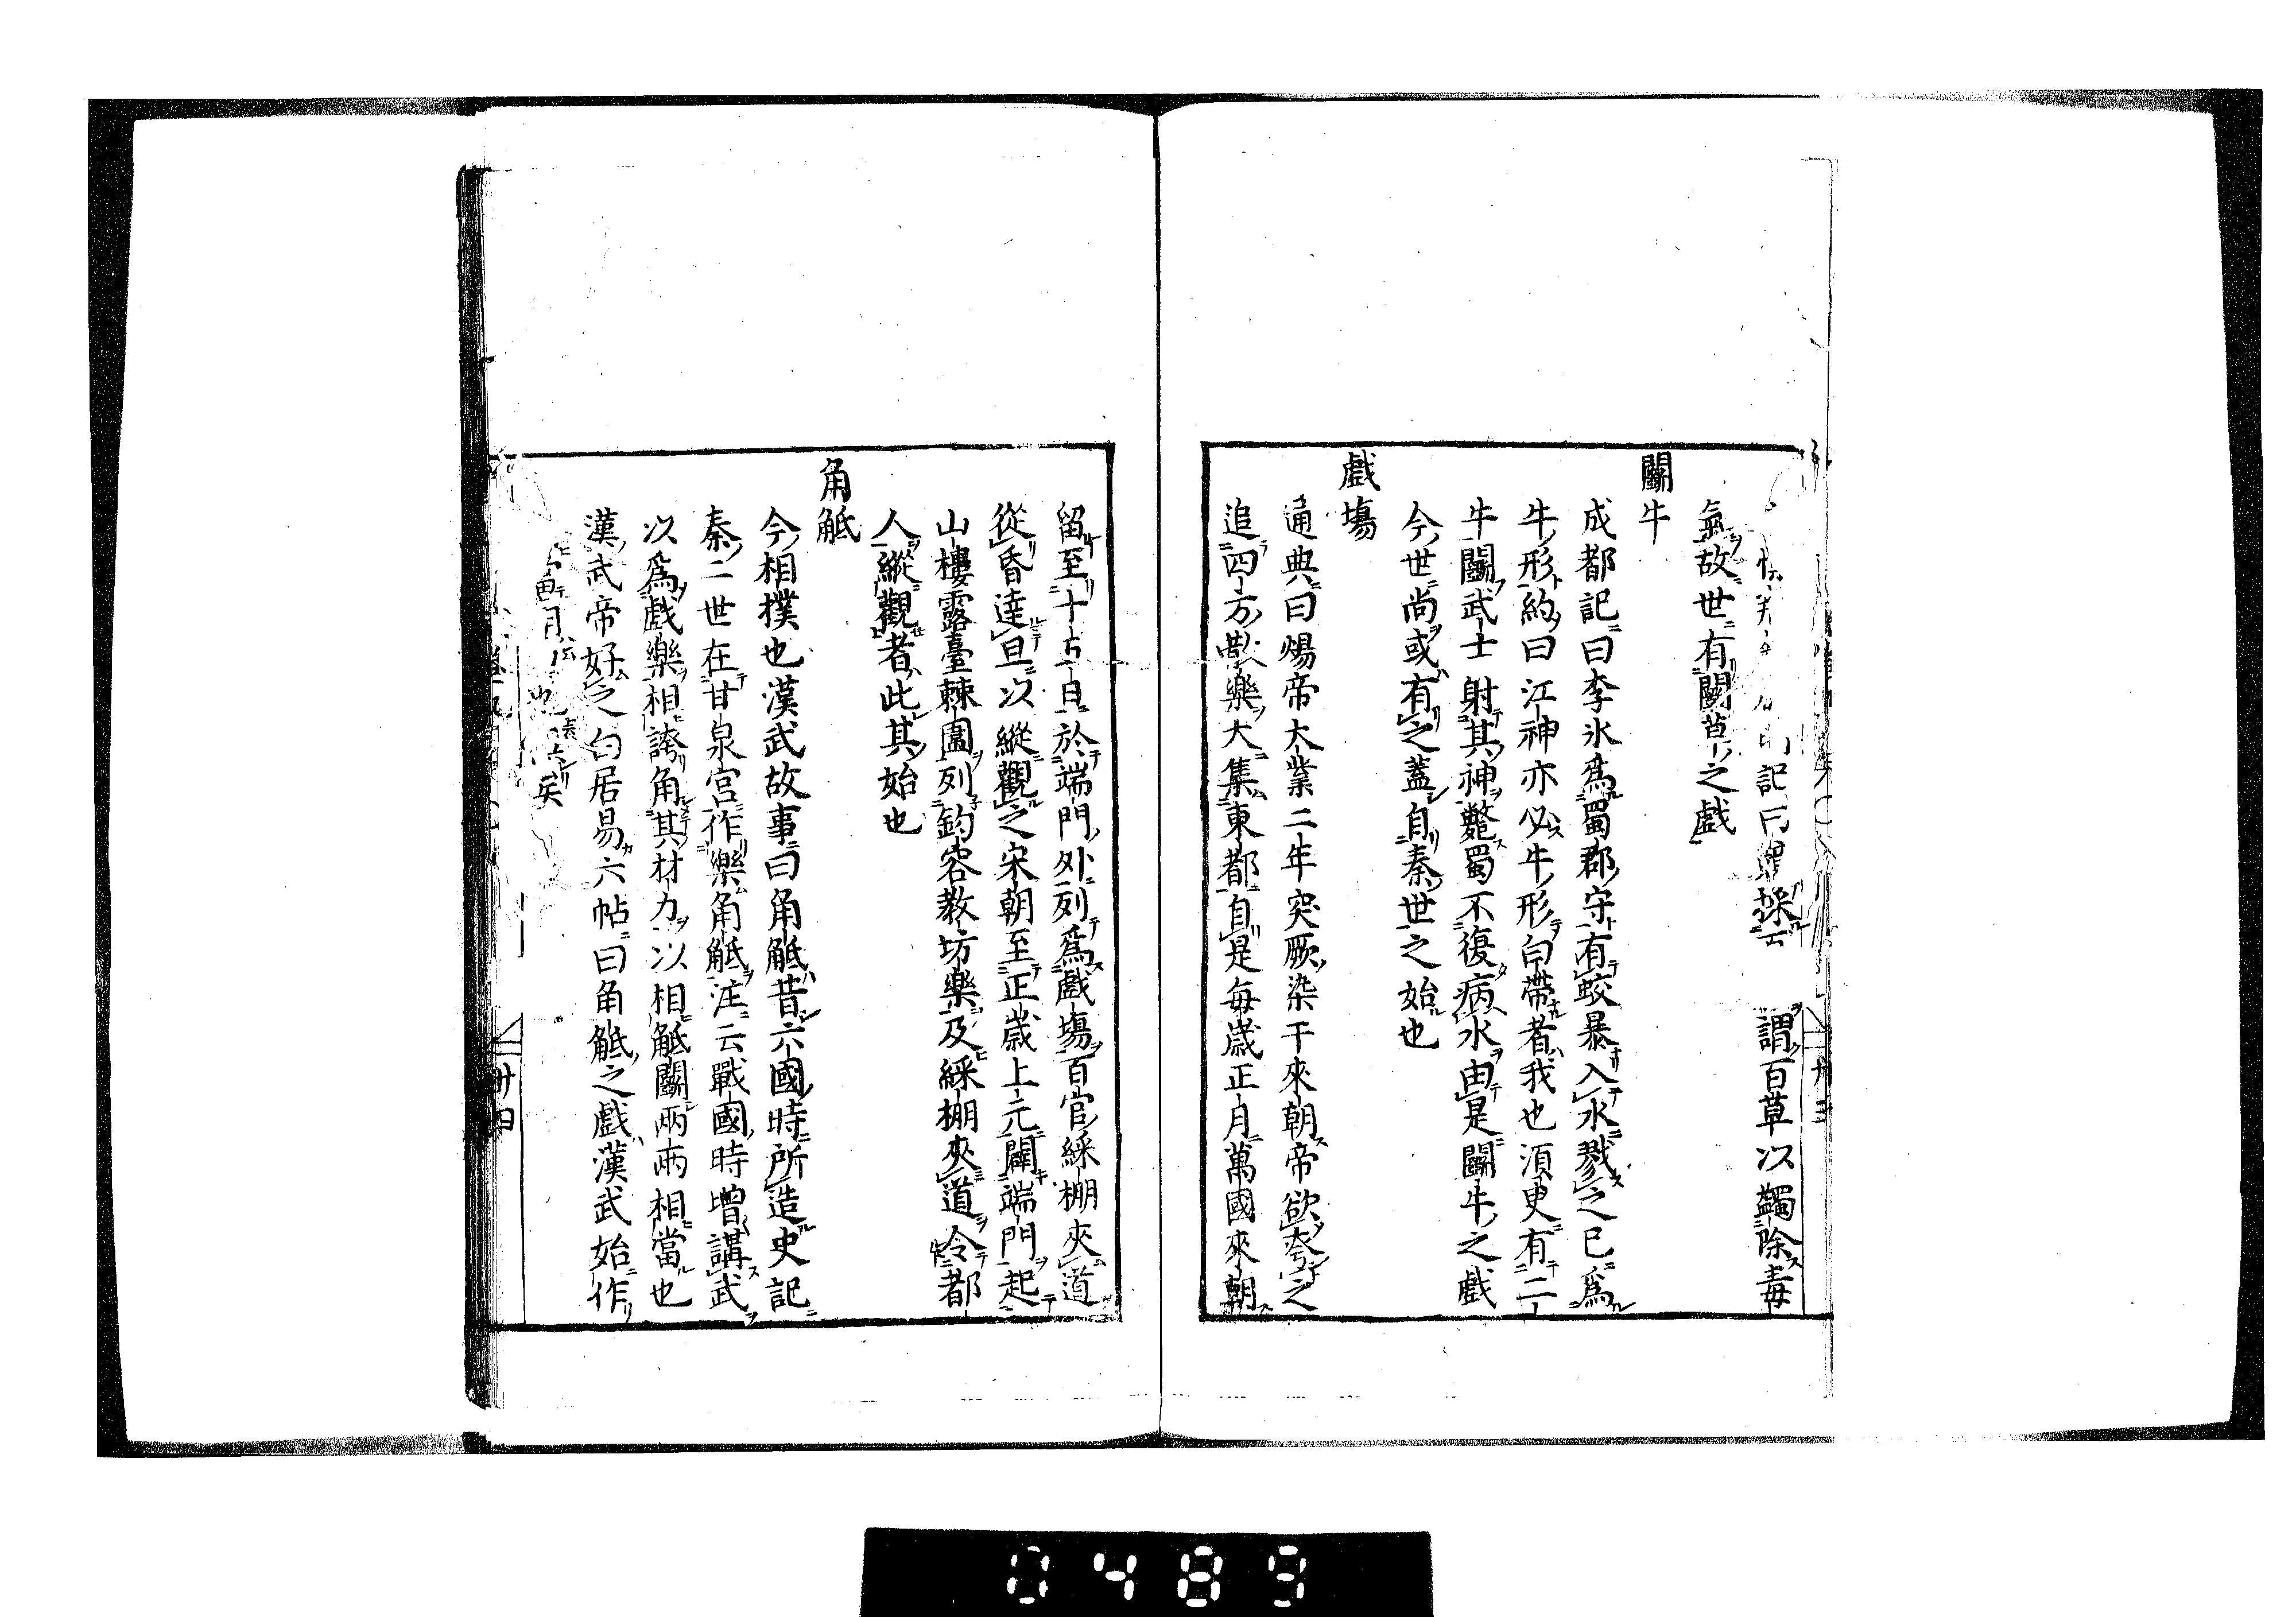 記曰 採 謂百草以蠲除毒
氣故世有鬭草之戲
鬭牛
成都記曰李氷爲蜀郡守有蛟暴入水戮之已爲
牛形約曰江神亦必牛形白帶者我也須臾有二
牛鬭武士射其神斃蜀不復病水由是鬭牛之戲
今世尚或有之蓋自秦世之始也
戲塲
通典曰煬帝大業二年突厥染干來朝帝欲夸之
追四方散樂大集東都自是每歲正月萬國來朝
留至十五日於端門外列爲戲塲百官綵棚夾道
從昏達旦以縱觀之宋朝至正歲上元闢端門起
山樓露臺棘圍列鈞容教坊樂及綵棚夾道令都
人縱觀者此其始也
角觝
今相撲也漢武故事曰角觝昔六國時所造史記
秦二世在甘泉宮作樂角觝注云戰國時增講武
以爲戲樂相誇角其材力以相觝鬭兩兩相當也
漢武帝好之白居易六帖曰角觝之戲漢武始作
矣
廿四
0489